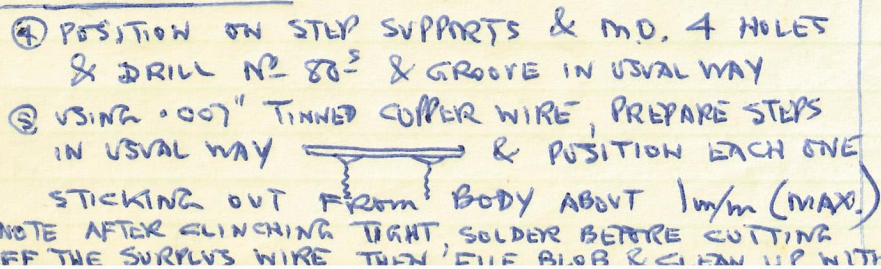 ④ POSITION ON STEP SUPPORTS & M.O. 4 HOLES
& DRILL Nº 80ˢ & GROOVE IN USUAL WAY
⑤ USING .007" TINNED COPPER WIRE, PREPARE STEPS
IN USUAL WAY & POSITION EACH ONE
STICKING OUT FROM BODY ABOUT 1m/m (MAX.)
NOTE AFTER CLINCHING TIGHT, SOLDER BEFORE CUTTING
OFF THE SURPLUS WIRE THEN FILE BLOB & CLEAN UP WITH